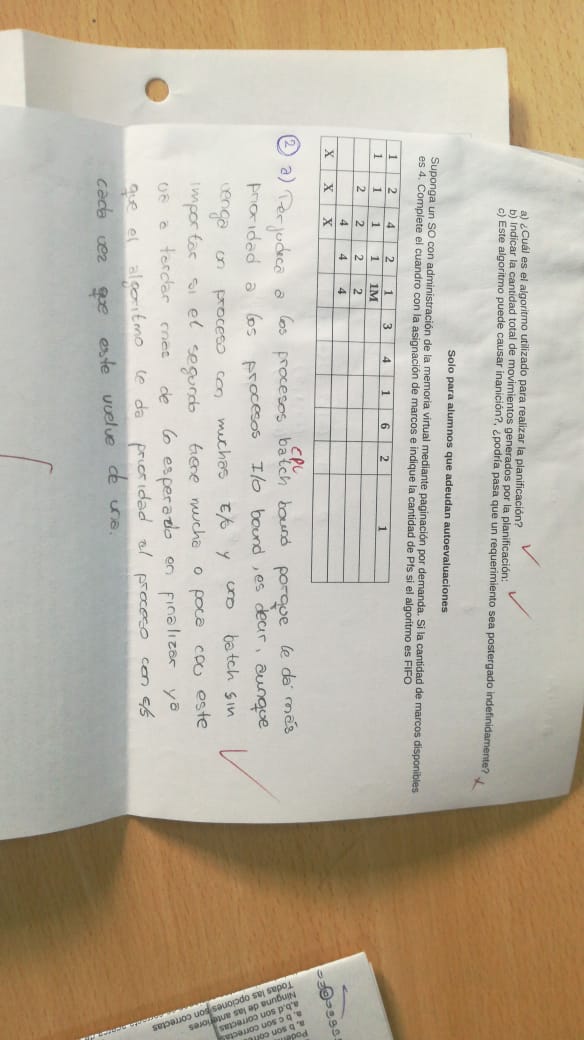 a) ¿Cuál es el algoritmo utilizado para realizar la planificación?
b) Indicar la cantidad total de movimientos generados por la planificación:
c) Este algoritmo puede causar inanición?, ¿podría pasa que un requerimiento sea postergado indefinidamente?
Solo para alumnos que adeudan autoevaluaciones
Suponga un SO con administración de la memoria virtual mediante paginación por demanda. Si la cantidad de marcos disponibles
es 4. Complete el cuandro con la asignación de marcos e indique la cantidad de Pfs si el algoritmo es FIFO
1 2 4 2 1 3 4 1 6 2 1
1 1 1 1 1M
2 2 2 2
4 4 4
X X X
CPU
2 a) Perjudica a los procesos batch bound porque le da más
prioridad a los procesos I/O bound, es decir, aunque
venga un proceso con muchas E/S y uno batch sin
importar si el segundo tiene mucha o poca CPU este
va a tardar más de lo esperado en finalizar ya
que el algoritmo le da prioridad al proceso con E/S
cada vez que este vuelve de una.
a, b son
a. b c son correctas
a,b,d son correctas
Ninguna de las anteriores
Todas las opciones son correctas